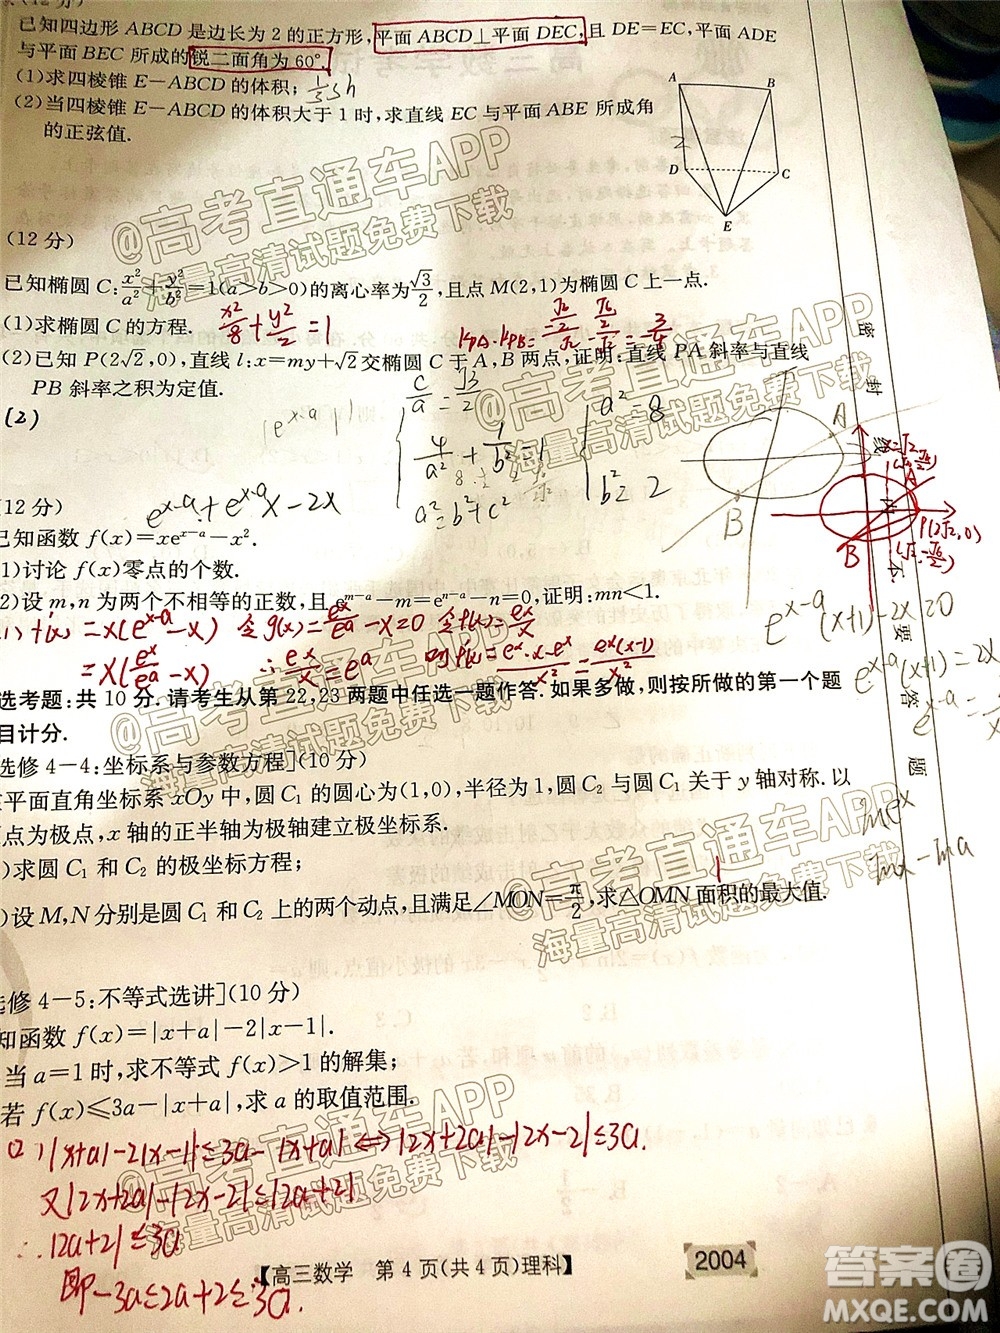 已知四边形 ABCD 是边长为 2 的正方形,平面 ABCD⊥平面 DEC,且 DE=EC,平面 ADE
与平面 BEC 所成的锐二面角为 60°.
(1)求四棱锥 E-ABCD 的体积; 1/3 S h
(2)当四棱锥 E-ABCD 的体积大于 1 时,求直线 EC 与平面 ABE 所成角
的正弦值.
A B
2
D C
E
@高考直通车APP
海量高清试题免费下载
(12 分)
已知椭圆 C: x²/a² + y²/b² =1(a>b>0)的离心率为 √3/2,且点 M(2,1)为椭圆 C 上一点.
(1)求椭圆 C 的方程. x²/8 + y²/2 = 1
(2)已知 P(2√2,0),直线 l:x=my+√2交椭圆 C 于 A,B 两点,证明:直线 PA 斜率与直线
PB 斜率之积为定值.
(2)
c/a = √3/2
4/a² + 1/b² = 1
a² = b² + c²
a² = 8
b² = 2
A
B
A
P(2√2,0)
B
密
封
线
内
不
要
答
题
(12 分)
e^(x-a) + e^(x-a) x - 2x
已知函数 f(x)=xe^(x-a)-x².
(1)讨论 f(x)零点的个数.
(2)设 m,n 为两个不相等的正数,且 e^(m-a)-m=e^(n-a)-n=0,证明:mn<1.
(1) f(x) = x(e^(x-a) - x) 令 g(x) = e^x/e^a - x = 0 令 f(x) = e^x/x
= x(e^x/e^a - x) ∴ e^x/x = e^a 则 f'(x) = (e^x·x-e^x)/x² = e^x(x-1)/x²
e^(x-a) (x+1) - 2x = 0
e^(x-a) (x+1) = 2x
选考题:共 10 分.请考生从第 22,23 两题中任选一题作答.如果多做,则按所做的第一个题
目计分.
选修 4-4:坐标系与参数方程](10 分)
平面直角坐标系 xOy 中,圆 C₁ 的圆心为(1,0),半径为 1,圆 C₂ 与圆 C₁ 关于 y 轴对称.以
点为极点,x 轴的正半轴为极轴建立极坐标系.
)求圆 C₁ 和 C₂ 的极坐标方程;
)设 M,N 分别是圆 C₁ 和 C₂ 上的两个动点,且满足∠MON=π/2,求△OMN 面积的最大值.
@高考直通车APP
海量高清试题免费下载
选修 4-5:不等式选讲](10 分)
知函数 f(x)=|x+a|-2|x-1|.
当 a=1 时,求不等式 f(x)>1 的解集;
若 f(x)≤3a-|x+a|,求 a 的取值范围.
|x+a|-2|x-1|≤3a-|x+a| ⇔ |2x+2a|-|2x-2|≤3a.
又|2x+2a|-|2x-2|≤|2a+2|
∴|2a+2|≤3a
即-3a≤2a+2≤3a.
@高考直通车APP
海量高清试题免费下载
【高三数学 第 4 页(共 4 页)理科】
2004
答案圈
MXQE.COM